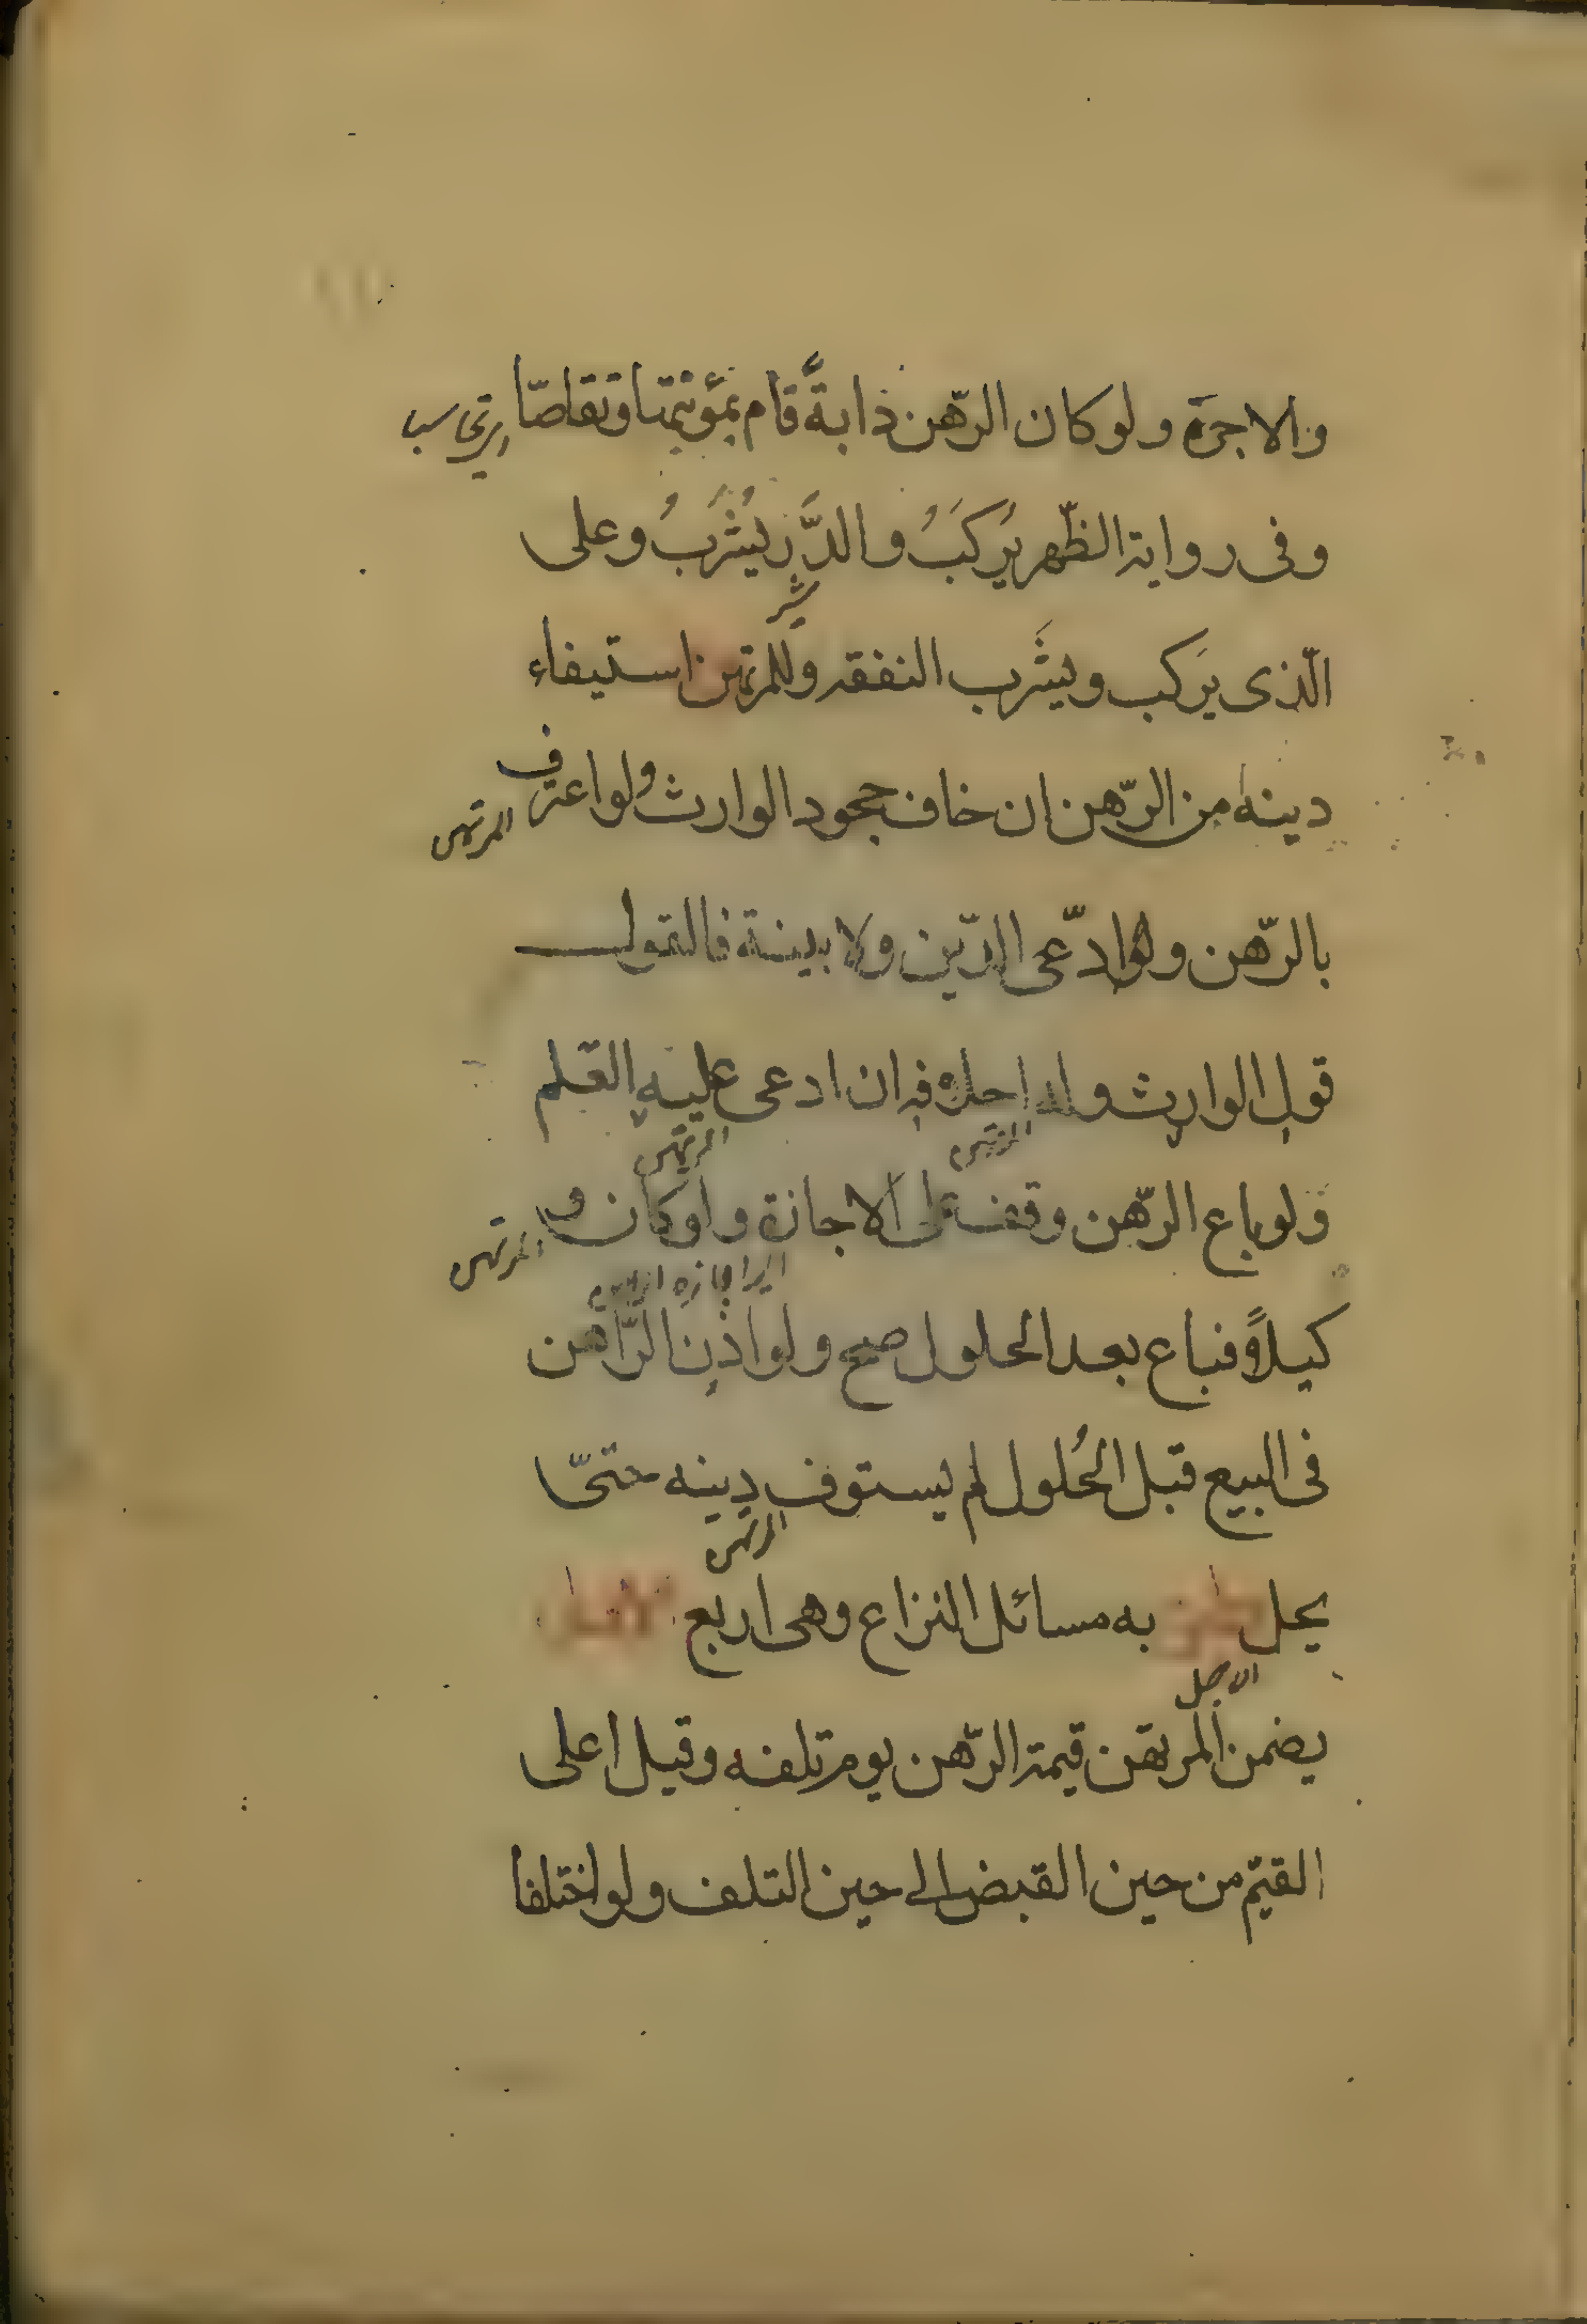 والاجرة ولو كان الرّهن دابةً قام بمؤنتها وتقاصّا
وفى رواية الظّهر يُركَبُ والدَّر يُشرَبُ وعلى
الّذى يَركب ويشَرب النفقه وللمرتهن استيفاء
دينه من الرّهن ان خاف جحود الوارث ولو اعترف
المرتهن
بالرّهن وادّعى الدّين ولا بينة فالقول
قول الوارث وله احلافه ان ادعى عليه العلم
المرتهن
ولو باع الرّهن وقف على الاجازة ولو كان و
المرتهن
كيلاً فباع بعد الحلول صح ولو اذن الرّاهن
فى البيع قبل الحُلول لم يستوف دينه حتىّ
المرتهن
يحل به مسائل النزاع وهى اربع
الاجل
يضمن المرتهن قيمة الرّهن يوم تلفه وقيل اعلى
القيّم من حين القبض الى حين التلف ولو اختلفا